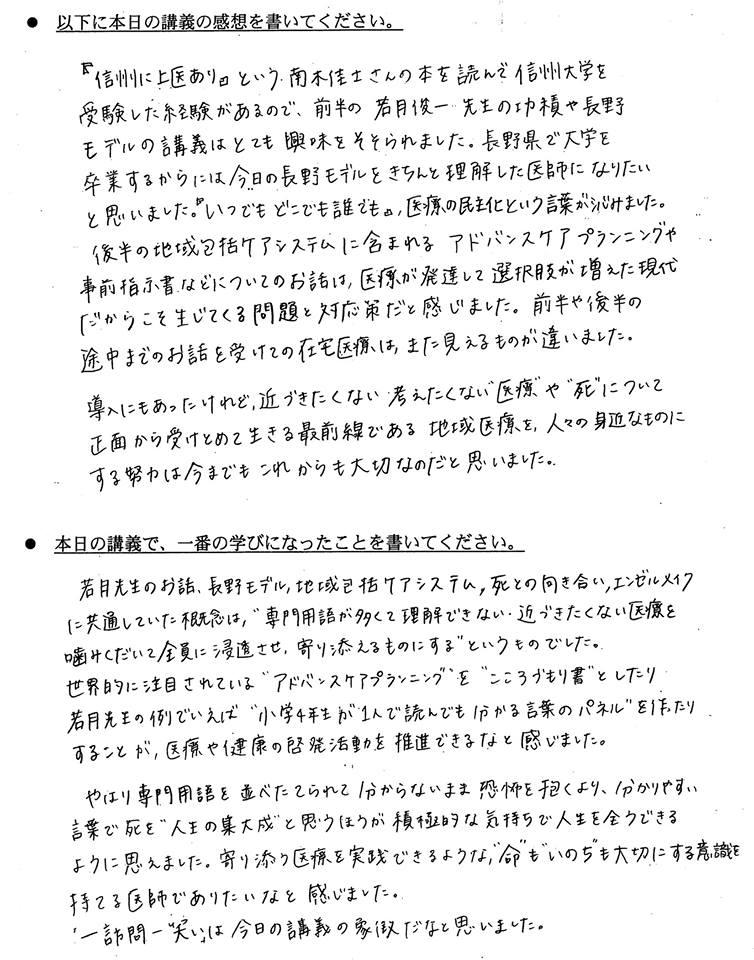 ● 以下に本日の講義の感想を書いてください。
『信州に上医あり』という南木佳士さんの本を読んで信州大学を
受験した経験があるので、前半の若月俊一先生の功積や長野
モデルの講義はとても興味をそそられました。長野県で大学を
卒業するからには今日の長野モデルをきちんと理解した医師になりたい
と思いました。『いつでもどこでも誰でも』,医療の民主化という言葉がしみました。
後半の地域包括ケアシステムに含まれるアドバンスケアプランニングや
事前指示書などについてのお話は,医療が発達して選択肢が増えた現代
だからこそ生じてくる問題と対応策だと感じました。前半や後半の
途中までのお話を受けての在宅医療は,また見えるものが違いました。
導入にもあったけれど,近づきたくない考えたくない"医療"や"死"について
正面から受けとめて生きる最前線である地域医療を,人々の身近なものに
する努力は今までもこれからも大切なのだと思いました。
● 本日の講義で、一番の学びになったことを書いてください。
若月先生のお話、長野モデル,地域包括ケアシステム,死との向き合い,エンゼルメイク
に共通していた概念は,"専門用語が多くて理解できない・近づきたくない医療を
噛みくだいて全員に浸透させ、寄り添えるものにする"というものでした。
世界的に注目されている"アドバンスケアプランニング"を"こころづもり書"としたり
若月先生の例でいえば"小学4年生が1人で読んでも分かる言葉のパネル"を作ったり
することが,医療や健康の啓発活動を推進できるなと感じました。
やはり専門用語を並べたてられて分からないまま恐怖を抱くより、分かりやすい
言葉で死を"人生の集大成"と思うほうが積極的な気持ちで人生を全うできる
ように思えました。寄り添う医療を実践できるような,"命"も"いのち"も大切にする意識を
持てる医師でありたいなと感じました。
「一訪問一"笑い"」は今日の講義の象徴だなと思いました。